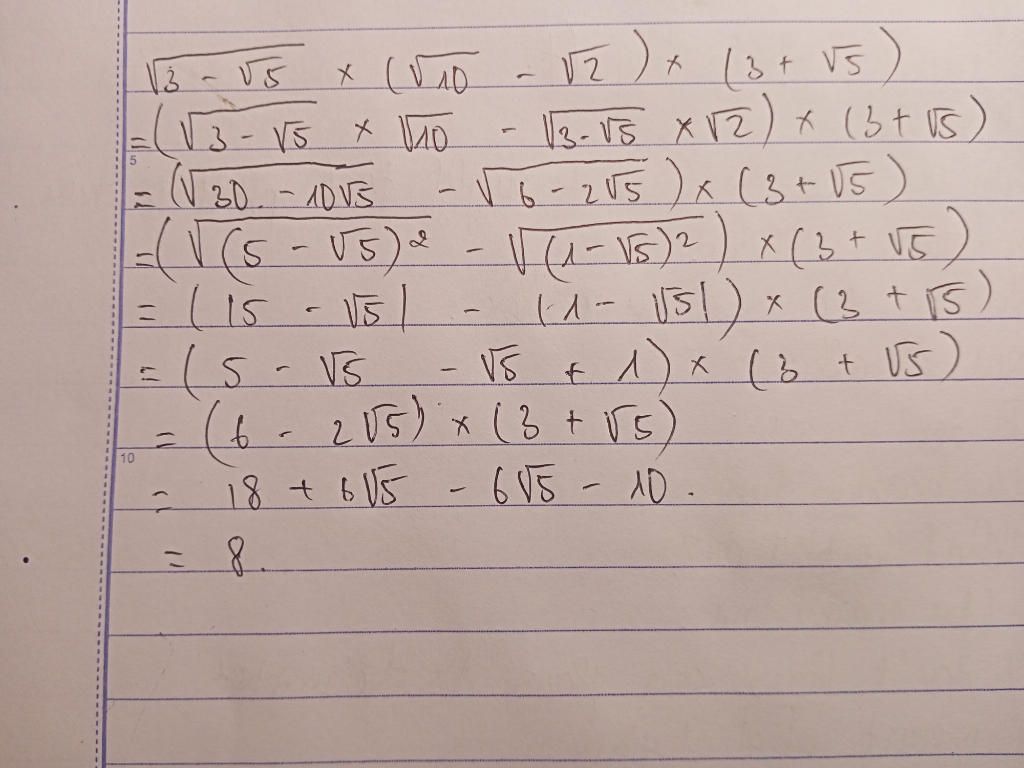 √(3 - √5) × (√10 - √2) × (3 + √5)
= (√(3 - √5) × √10 - √(3 - √5) × √2) × (3 + √5)
5
= (√(30 - 10√5) - √(6 - 2√5)) × (3 + √5)
= (√((5 - √5)²) - √((1 - √5)²)) × (3 + √5)
= (|5 - √5| - |1 - √5|) × (3 + √5)
= (5 - √5 - √5 + 1) × (3 + √5)
= (6 - 2√5) × (3 + √5)
10
= 18 + 6√5 - 6√5 - 10.
= 8.